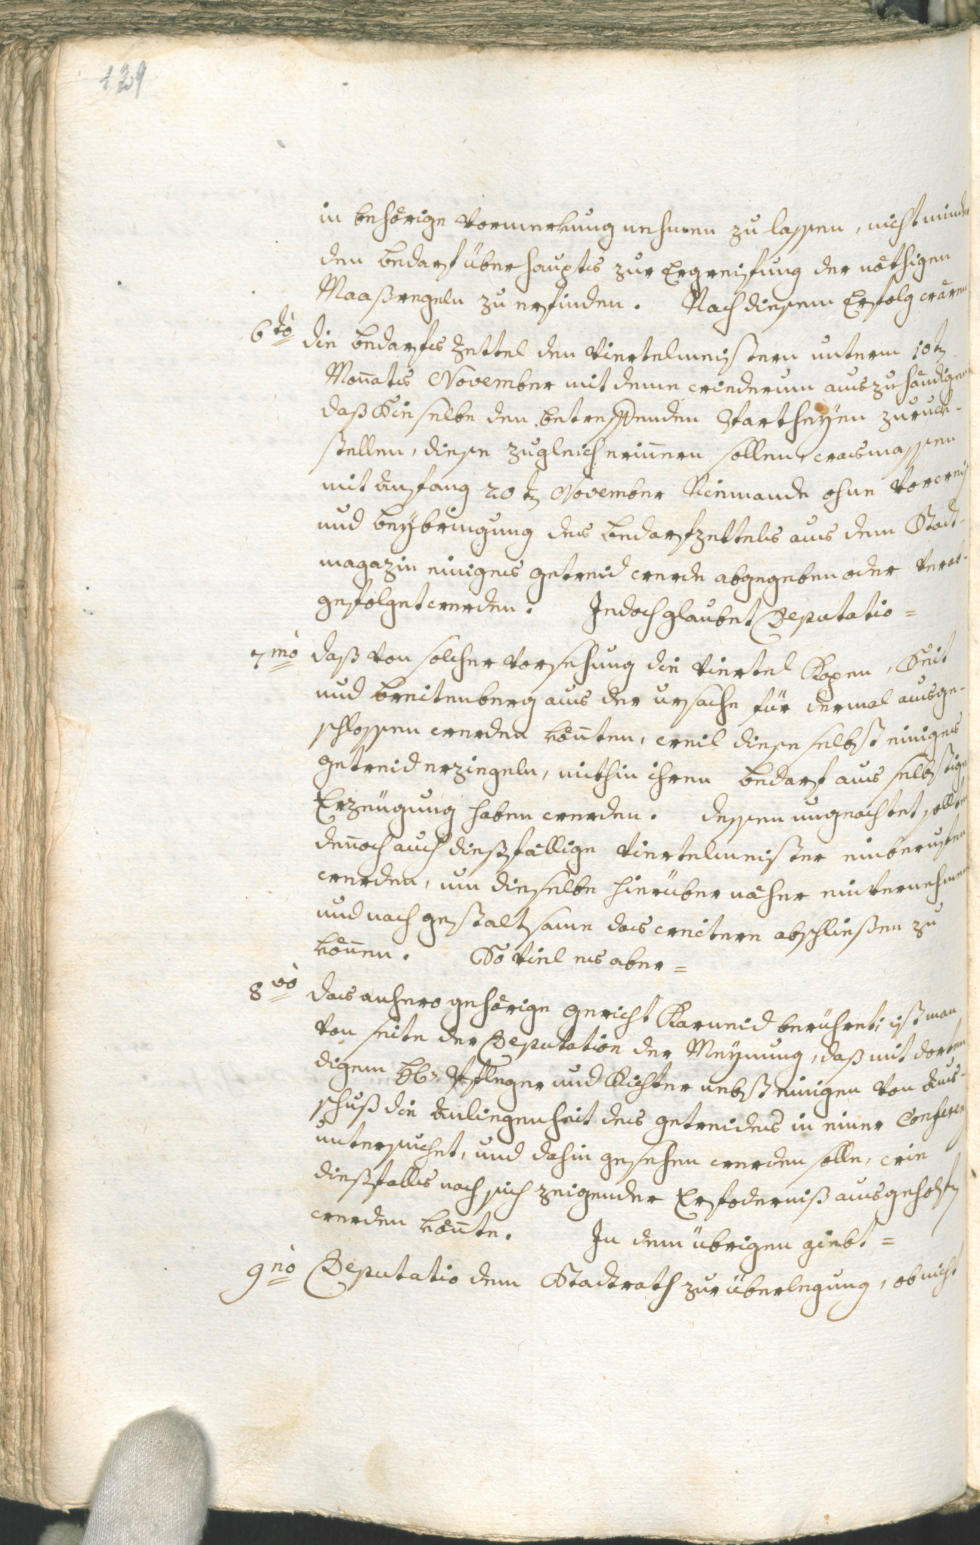 129
in behörige Vormerkung nehmen zu lassen, nicht minder
den bedarf überhaupts zur Ergreifung der nöthigen
Maaßregeln zu erfinden. Nach diesem Erfolg wären
6to die bedarfs Zettel den Viertelmeistern unterm 10tn
Monats November mit deme wiederum auszuhändigen
daß Dieselbe den betreffenden Partheyen zuruck-
stellen, diese zugleich erinnern sollen, wasmassen
mit Anfang 20tn November Niemande ohne Vorweis
und beybringung des bedarfzettels aus dem Stadt-
magazin einiges getreid werde abgegeben oder Verab-
gefolget werden. Jedoch glaubet Deputatio =
7mo daß von solcher Vorsehung die Viertel Haßen, Seit
und Breitenberg aus der ursache für dermal ausge-
schlossen werden könten, weil diese selbst einiges
getreid erziegeln, mithin ihren bedarf aus selbstiger
Erzeügung haben werden. dessen ungeachtet sollen
denoch auch dießfällige Viertelmeister einberufen
werden, um dieselbe hierüber näher einvernehmen
und nach gestaltsame das weitere abschließen zu
können. So viel es aber =
8vo das anhero gehörige Gericht Karneid berühret; ist man
von seite der Deputation der Meynung, daß mit dorten
digem hh. Pfleger und Richter nebst einigen von Aus-
schuß die Anliegenheit des getreides in einer Conferenz
untersuchet, und dahin gesehen werden solle, wie
dießfalls nach sich zeigender Erforderniß ausgeholfen
werden könte. In dem übrigen giebt =
9no Deputatio dem Stadtrath zur überlegung, ob nicht